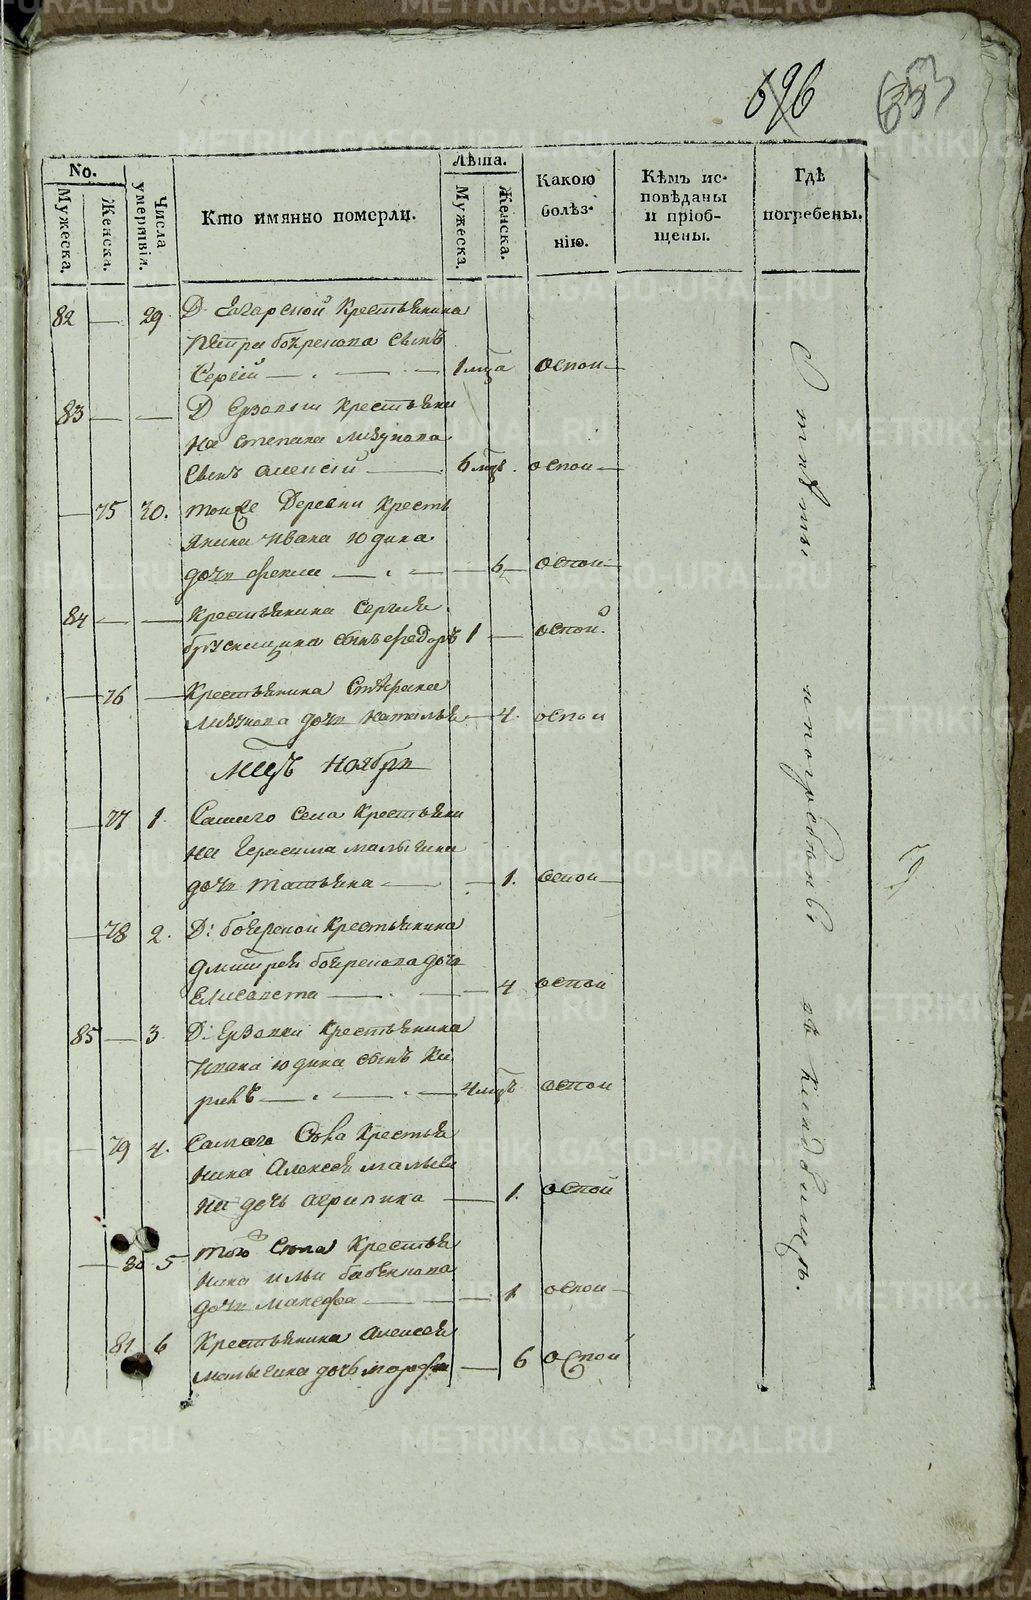 696
653
No.
Мужеска.
Женска.
Числа умертвія.
Кто имянно померли.
Лѣта.
Мужеска.
Женска.
Какою
болѣз-
нію.
Кѣмъ ис-
повѣданы
и пріоб-
щены.
Гдѣ
погребены.
82 — 29 Д. крестьянина
Петра сынъ
Сергій — 1 мца оспои
83 — — Д Ерзовки крестьяни
на Степана Мизунова
сынъ Алексій — 6 мцъ оспои
— 75 30. тойже Деревни крестъ
янина Ивана Юдина
дочь — 6 оспои
84 — — крестьянина Сергия
сынъ федоръ 1 — оспой.
— 76 — крестьянина Стефана
Мизунова дочь Наталья — 4. оспои
Мцъ Ноября
— 77 1. Самого села крестьяни
на Герасима Малыгина
дочь Татьяна — 1. оспои
— 78 2. Д: крестьянина
дмитрея дочь
Елисавета — 4 оспои
85 — 3. Д: Ерзовки крестьянина
Ивана Юдина сынъ Ки
рикъ — 4 мцъ оспои
79 4. Самого Села крестья
нина Алексея Малыги
на дочь агрипина — 1. оспой
— 80 5 того Села крестья
нина ильи
дочь — 1 оспои
81 6 крестьянина алексея
малыгина дочь марфа — 6 оспои
Отпѣты и погребены на кладбищѣ.